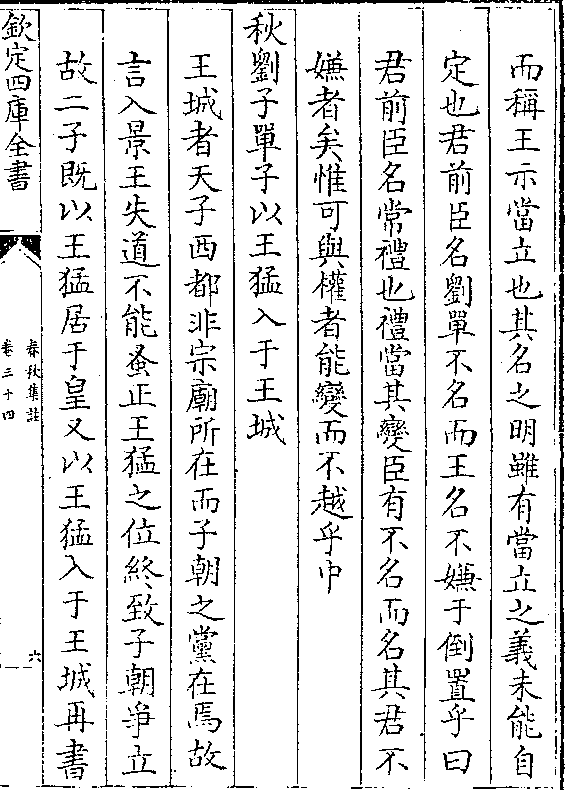 而稱王示當立也其名之明雖有當立之義未能自
定也君前臣名劉單不名而王名不嫌于倒置乎曰
君前臣名常禮也禮當其變臣有不名而名其君不
嫌者矣惟可與權者能變而不越乎中
秋劉子單子以王猛入于王城
王城者天子西都非宗廟所在而子朝之黨在焉故
言入景王失道不能蚤正王猛之位終致子朝爭立
故二子既以王猛居于皇又以王猛入于王城再書
欽定四庫全書
春秋集註
卷三十四
六